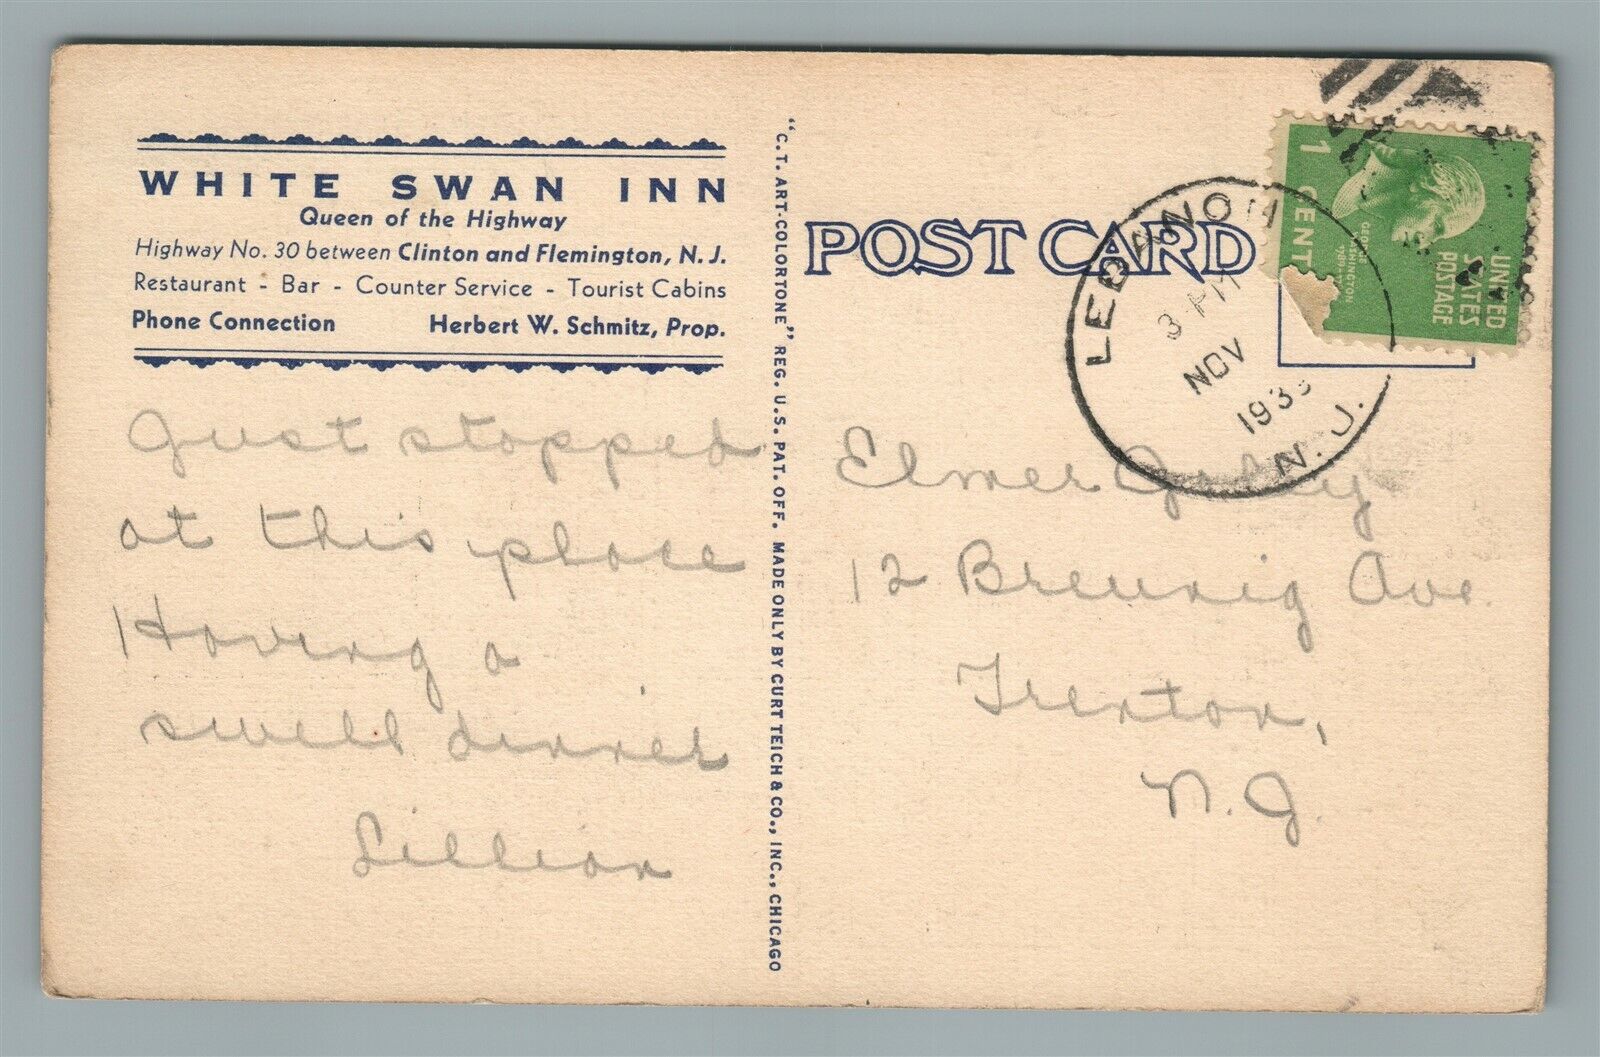 WHITE SWAN INN
Queen of the Highway
Highway No. 30 between Clinton and Flemington, N. J.
Restaurant - Bar - Counter Service - Tourist Cabins
Phone Connection Herbert W. Schmitz, Prop.
Just stopped
at this place
Having a
swell dinner
Lillian
"C.T. ART-COLORTONE" REG. U.S. PAT. OFF. MADE ONLY BY CURT TEICH & CO., INC., CHICAGO
POST CARD
LEBANON
3 PM
NOV
193
N. J.
1 CENT
GEORGE WASHINGTON
UNITED STATES POSTAGE
Elmer
12 Breunig Ave
Trenton,
N. J.